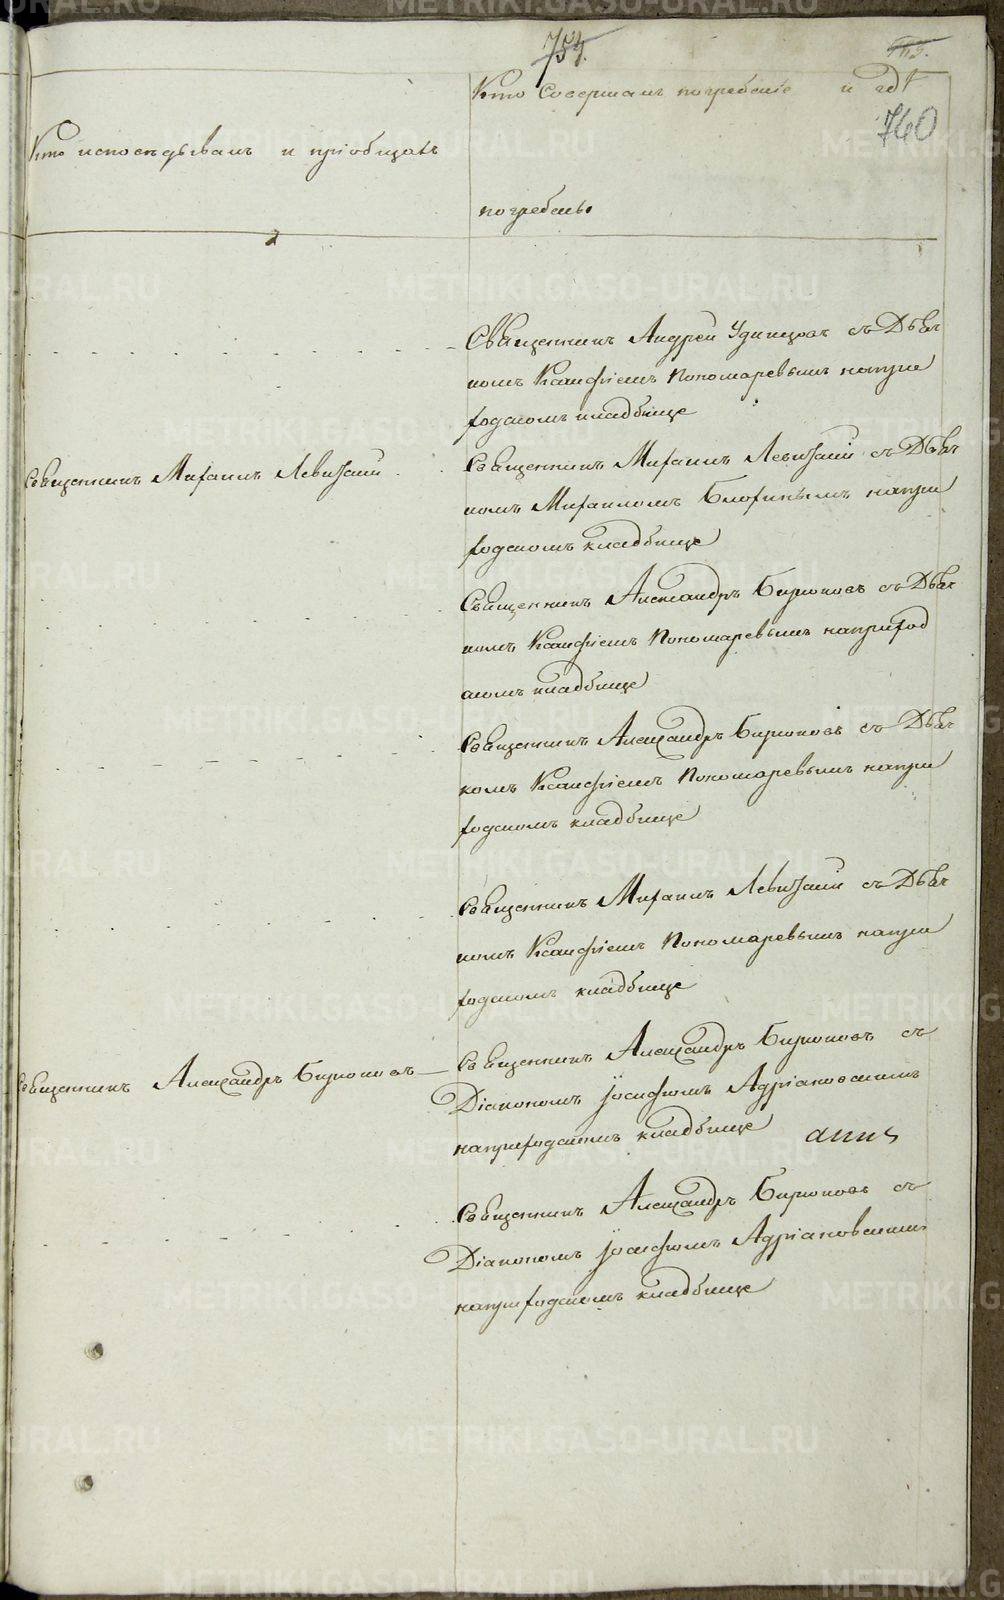 759.
760
Кто совершалъ погребеніе и гдѣ
Кто исповѣдывалъ и пріобщалъ
погребены
Священникъ Андрей Удинцовъ съ Дьяч
комъ Ксанфіемъ Пономаревымъ на при
ходскомъ кладбище
Священникъ Михаилъ Левитскій
Священникъ Михаилъ Левитскій съ Дьяч
комъ Михаиломъ на при
ходскомъ кладбище
Священникъ Александръ Бирюковъ съ Дьяч
комъ Ксанфіемъ Пономаревымъ на приход
скомъ кладбище
Священникъ Александръ Бирюковъ съ Дьяч
комъ Ксанфіемъ Пономаревымъ на при
ходскомъ кладбище
Священникъ Михаилъ Левитскій съ Дьяч
комъ Ксанфіемъ Пономаревымъ на при
ходскомъ кладбище
Священникъ Александръ Бирюковъ
Священникъ Александръ Бирюковъ съ
Діакономъ Іосифомъ Адріановскимъ
на приходскомъ кладбище
Священникъ Александръ Бирюковъ съ
Діакономъ Іосифомъ Адріановскимъ
на приходскомъ кладбище
METRIKI.GASO-URAL.RU